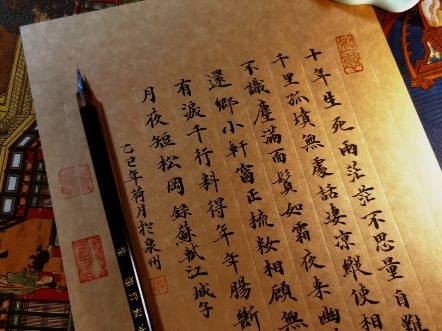 十年生死兩茫茫不思量自難
千里孤墳無處話淒涼縱使相
不識塵滿面鬢如霜夜來幽
還鄉小軒窗正梳粧相顧無
有淚千行料得年年腸斷
月夜短松岡錄蘇軾江城子
乙巳年荷月於泉州